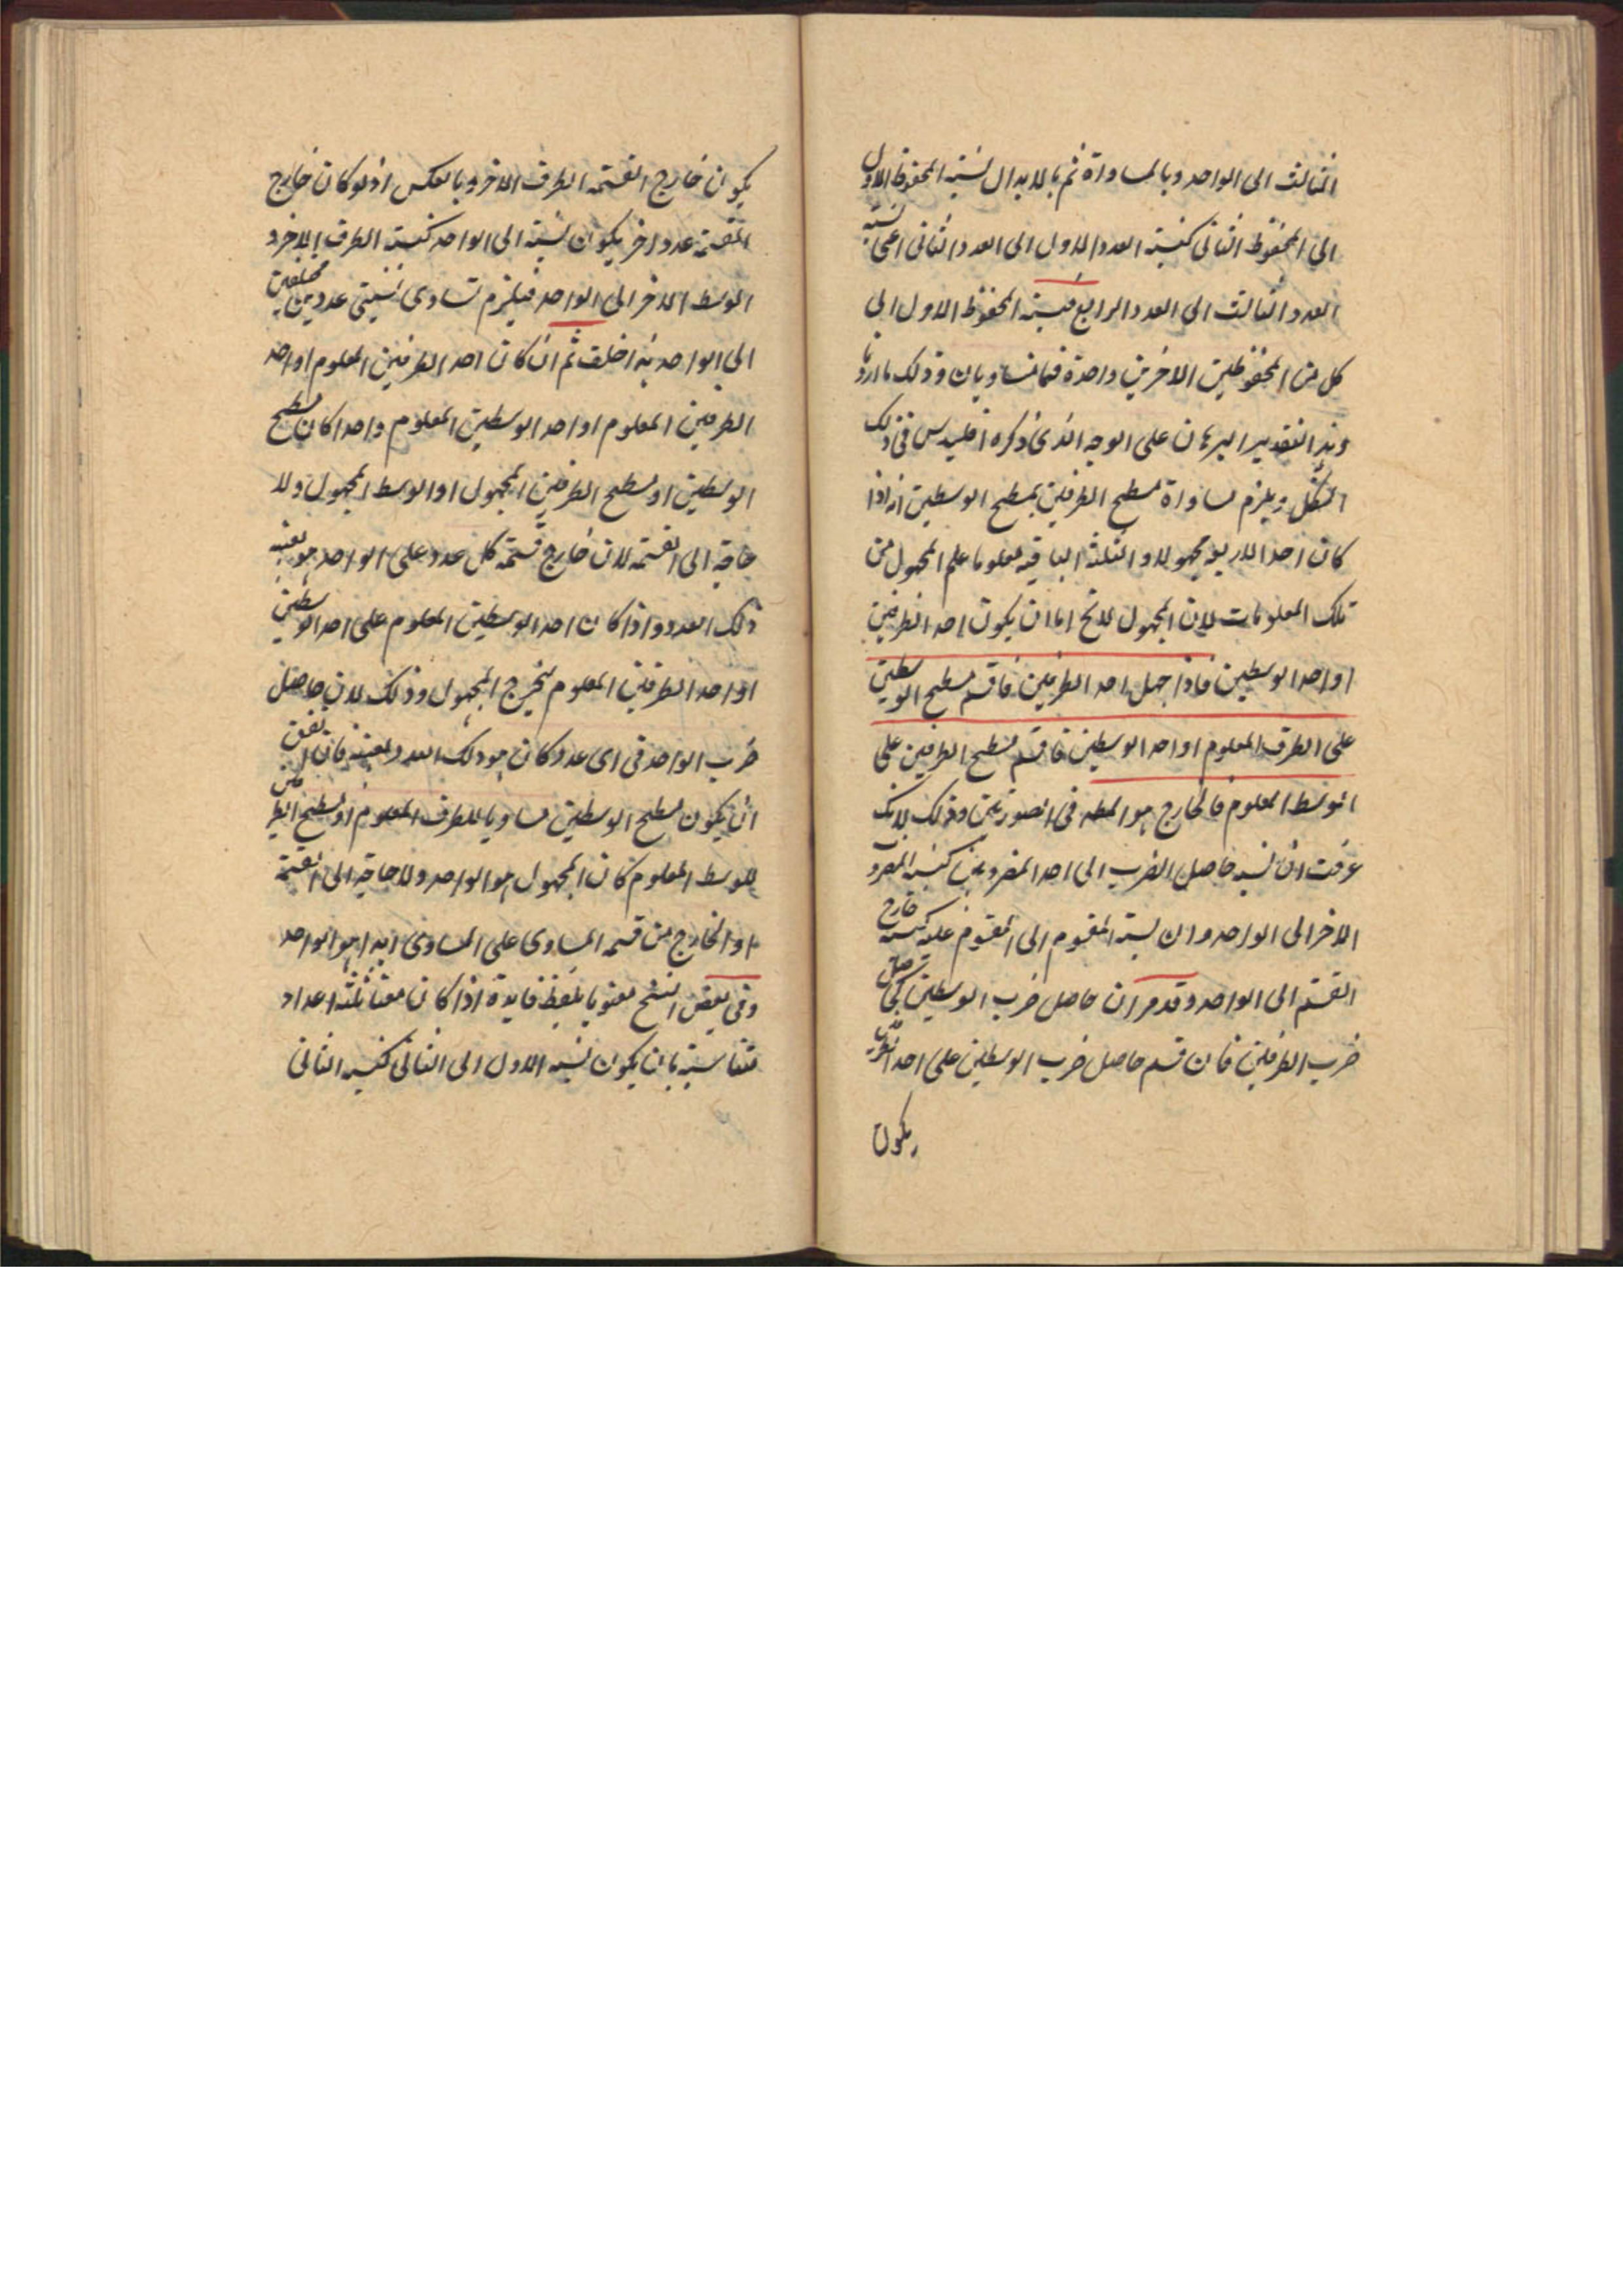 الثالث الى الواحد وبالمساواة ثم بالابدال نسبة المحفوظ الاول
الى المحفوظ الثانى كنسبة العدد الاول الى العدد الثانى اعنى نسبة
العدد الثالث الى العدد الرابع فنسبة المحفوظ الاول الى
كل من المحفوظين الاخرين واحدة فهما متساويان وذلك ما اردنا
وهذا تقدير البرهان على الوجه الذى ذكره اقليدس فى ذلك
الشكل ويلزم مساواة مسطح الطرفين بمسطح الوسطين انه اذا
كان احد الاربعة مجهولا والثلثة الباقية معلوما علم المجهول من
تلك المعلومات لان المجهول لا يخ اما ان يكون احد الطرفين
او احد الوسطين فاذا جهل احد الطرفين فاقسم مسطح الوسطين
على الطرف المعلوم او احد الوسطين فاقسم مسطح الطرفين على
الوسط المعلوم فالخارج هو المط فى الصورتين وذلك لانك
عرفت ان نسبة حاصل الضرب الى احد المضروبين كنسبة المضروب
الاخر الى الواحد وان نسبة المقسوم الى المقسوم عليه كنسبة خارج
القسمة الى الواحد وقد مر ان حاصل ضرب الوسطين كحاصل
ضرب الطرفين فان قسم حاصل ضرب الوسطين على احد الطرفين
يكون
يكون خارج القسمة الطرف الاخر وبالعكس اذ لو كان خارج
القسمة عدد اخر يكون نسبته الى الواحد كنسبة الطرف الاخر و
الوسط الاخر الى الواحد فيلزم تساوى نسبتى عددين مختلفين
الى الواحد هذا خلف ثم ان كان احد الطرفين المعلوم او احد
الطرفين المعلوم او احد الوسطين المعلوم واحدا كان مسطح
الوسطين او مسطح الطرفين المجهول او الوسط المجهول ولا
حاجة الى القسمة لان خارج قسمة كل عدد على الواحد هو بعينه
ذلك العدد واذا كان احد الوسطين المعلوم على احد الوسطين
او احد الطرفين المعلوم يخرج المجهول وذلك لان حاصل
ضرب الواحد فى اى عدد كان هو ذلك العدد بعينه فان اتفق
ان يكون مسطح الوسطين مساويا للطرف المعلوم او مسطح الطرفين
للوسط المعلوم كان المجهول هو الواحد ولا حاجة الى القسمة
او الخارج من قسمة المساوى على المساوى ابدا هو الواحد
وفى بعض النسخ معنونا بلفظ فايدة اذا كان معنا ثلثة اعداد
متناسبة بان يكون نسبة الاول الى الثانى كنسبة الثانى